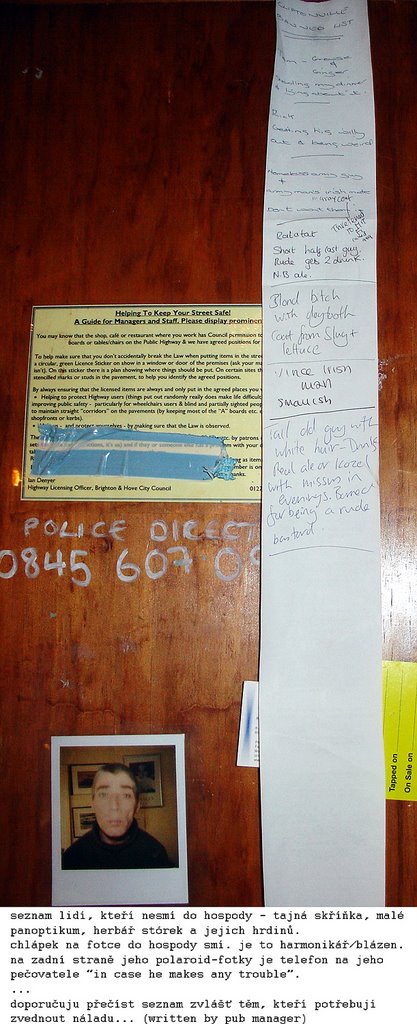 CLIFTONVILLE
BANNED LIST
Ginger
Stealing my dinner
& lying about it.
Getting his willy
out & being weird
Homeless army guy
+
Army mans irish mate
Dont want them
Ralatat
Short half cast guy
Rude gets 2 drunk
N.B ale.
Blond bitch
with
coat from Slug +
lettuce
Vince Irish
man
smallish
Tall old guy with
white hair - Drinks
Real ale or Kozel
with missus in
evenings. Barred
for being a rude
bastard
Helping To Keep Your Street Safe!
A Guide for Managers and Staff. Please display prominen
You may know that the shop, café or restaurant where you work has Council
boards or tables/chairs on the Public Highway & we have agreed positions for
To help make sure that you don't accidentally break the Law when putting items in the stre
a circular, green Licence Sticker on show in a window or door of the premises (ask your m
isn't). On this sticker there is a plan showing where things should be put. On certain sites th
stencilled marks or studs in the pavement, to help you identify the agreed positions.
By always ensuring that the licensed items are always and only put in the agreed places you
• Helping to protect Highway users (things put out randomly really does make life difficult
improving public safety - particularly for wheelchairs users & blind and partially sighted peop
to maintain straight "corridors" on the pavements (by keeping most of the "A" boards etc.
shopfronts or kerbs).
- and protect yourselves - by making sure that the Law is observed.
Ian Denyer
Highway Licensing Officer, Brighton & Hove City Council 0122
POLICE DIRECT
0845 607 09
Tapped on
On Sale on
seznam lidí, kteří nesmí do hospody - tajná skříňka, malé
panoptikum, herbář stórek a jejich hrdinů.
chlápek na fotce do hospody smí. je to harmonikář/blázen.
na zadní straně jeho polaroid-fotky je telefon na jeho
pečovatele "in case he makes any trouble".
...
doporučuju přečíst seznam zvlášť těm, kteří potřebuji
zvednout náladu... (written by pub manager)